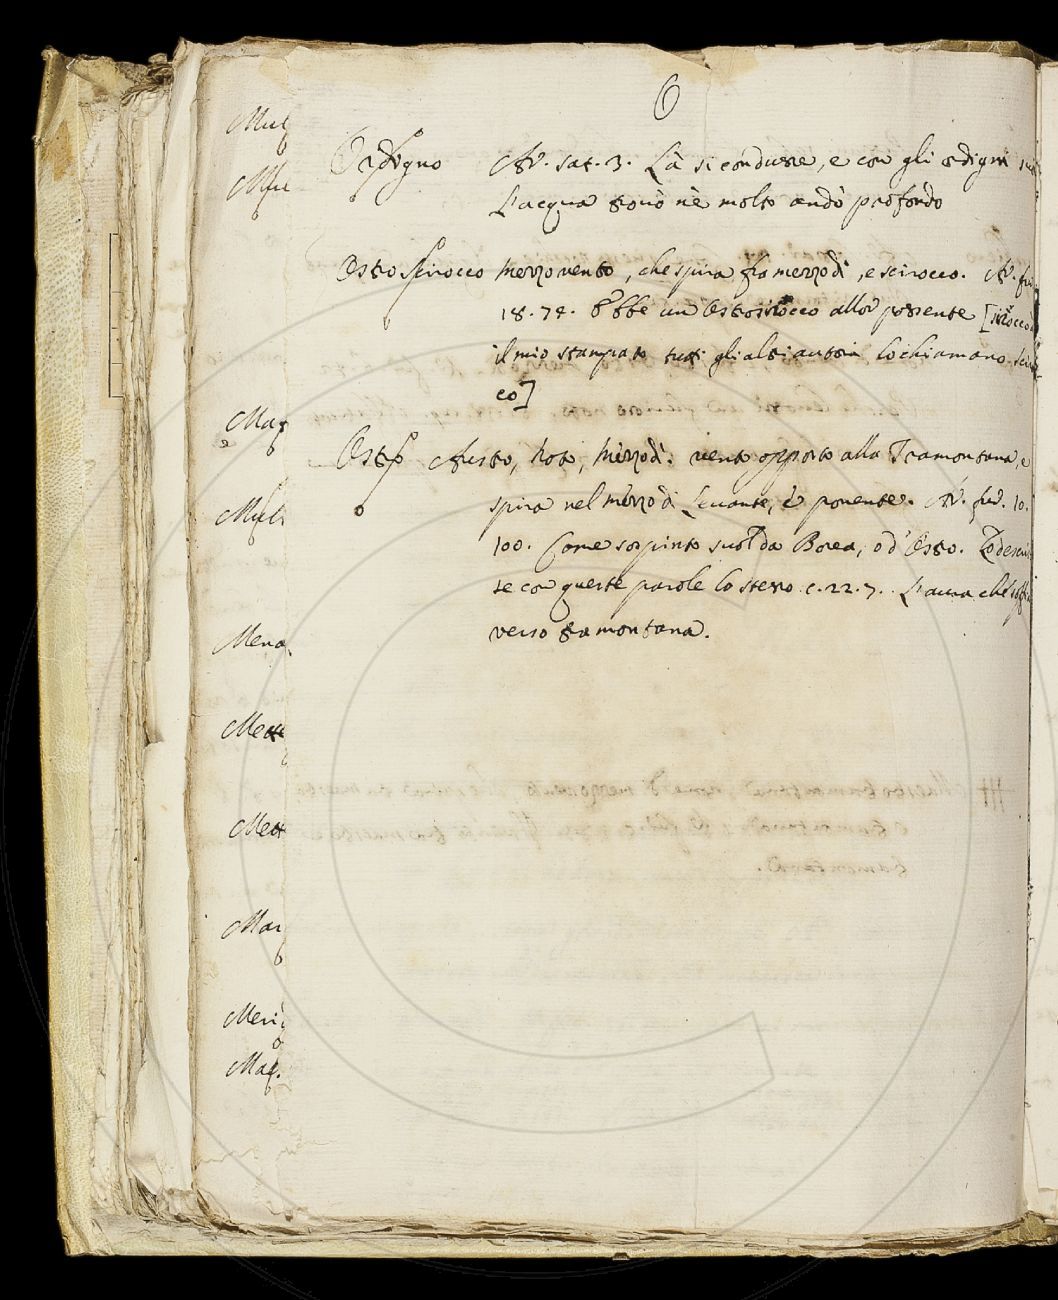 O
Ordigno Ar. sat. 3. Là si condusse, e con gli ordigni suoi
L'acqua trovò nè molto andò profondo
Ostro Scirocco Mezzo vento, che spira fra mezzodì, e scirocco. Ar. fur.
18. 74. Ebbe un Ostrosirocco allor possente [sirocco à
il mio stampato tutti gli altri autori lo chiamano sciroc
co]
Ostro Austro, Noto, Mezzodì: vento opposto alla Tramontana, e
spira nel mezzo di Levante, e ponente. Ar. fur. 10.
100. Come sospinto suol da Borea, o d'Ostro. Lo descris
se con queste parole lo stesso c. 22. 7. L'aura che soffia
verso tramontana.
Mul
Mu
Mag
Mul
Mena
Mett
Mett
Mar
Meri
Mag.